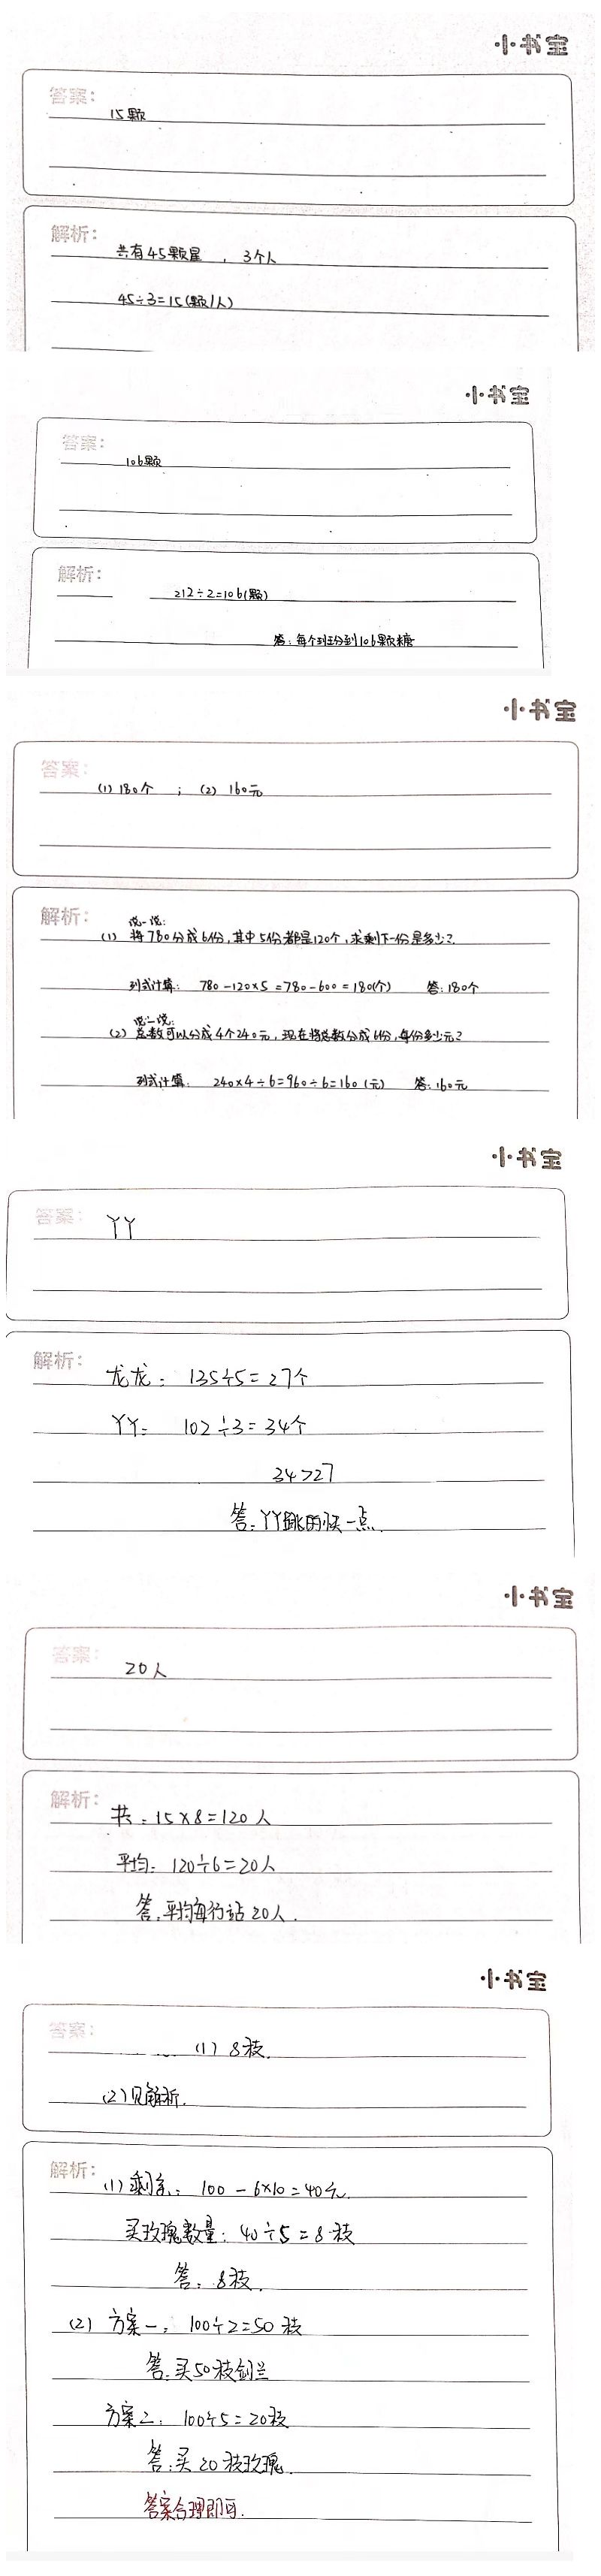 小书宝
答案：
15颗
解析：
共有45颗星 ，3个人
45÷3=15(颗/人)
小书宝
答案：
106颗
解析：
212÷2=106(颗)
答：每个班分到106颗糖
小书宝
答案：
(1) 180个 ；(2) 160元
解析：
说一说：
(1) 将780分成6份，其中5份都是120个，求剩下一份是多少？
列式计算： 780-120×5=780-600=180(个) 答：180个
说一说：
(2) 总数可以分成4个240元，现在将总数分成6份，每份多少元？
列式计算： 240×4÷6=960÷6=160(元) 答：160元
小书宝
答案： 丫丫
解析： 龙龙： 135÷5=27个
丫丫： 102÷3=34个
34>27
答：丫丫跳的快一点.
小书宝
答案：
20人
解析：
共：15×8=120人
平均：120÷6=20人
答：平均每行站20人.
小书宝
答案：
(1) 8枝.
(2)见解析.
解析：
(1)剩余：100-6×10=40元.
买玫瑰数量：40÷5=8枝
答：8枝.
(2) 方案一：100÷2=50枝
答：买50枝剑兰
方案二：100÷5=20枝
答：买20枝玫瑰.
答案合理即可.